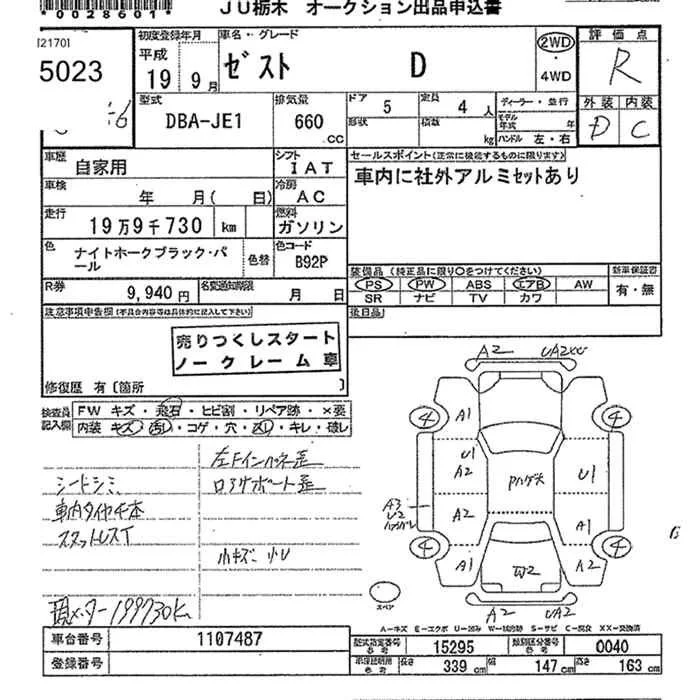 *0028601*
JU栃木 オークション出品申込書
(21701
5023
初度登録年月
平成
19年 9月
車名・グレード
ゼスト D
2WD
・4WD
評価点
R
型式
DBA-JE1
排気量
660 CC
ドア 5
定員 4人
形状
積数 kg
ディーラー・並行
モデル年式 年
ハンドル 左・右
外装 内装
D C
車歴
自家用
シフト
IAT
セールスポイント(正常に機能するものに限ります)
車内に社外アルミセットあり
車検
年 月( 日)
冷房
AC
走行
19万9千730 km
燃料
ガソリン
色
ナイトホークブラック・パール
色替
色コード
B92P
装備品 (純正品に限り○をつけてください)
PS PW ABS エアB AW
SR ナビ TV カワ
新車保証書
有・無
R券
9,940円
名変通知期限
月 日
後日品
注意事項申告欄(不具合内容等は具体的に記入して下さい)
売りつくしスタート
ノークレーム車
修復歴 有〔箇所 〕
検査員記入欄
FW キズ・飛石・ヒビ割・リペア跡・×要
内装 キズ・汚れ・コゲ・穴・スレ・キレ・破レ
左Fインハネ歪
ロアサポート歪
シートシミ
車内タイヤ4本
スタットレスT
小キズ 小U
現メーター199730km
A2 UA2XU
4 A1 4
U1
A2
Pハゲ大
U1
A3
U2
A2 A1
4 A1 W2 A2 4
スペア
A2 UA2
A-キズ E-エクボ U-凹み W-補修跡 S-サビ C-腐食 XX-交換済
車台番号 1107487
登録番号
型式指定番号 参考 15295
類別区分番号 参考 0040
車庫証明用 参考
長さ 339 cm
幅 147 cm
高さ 163 cm